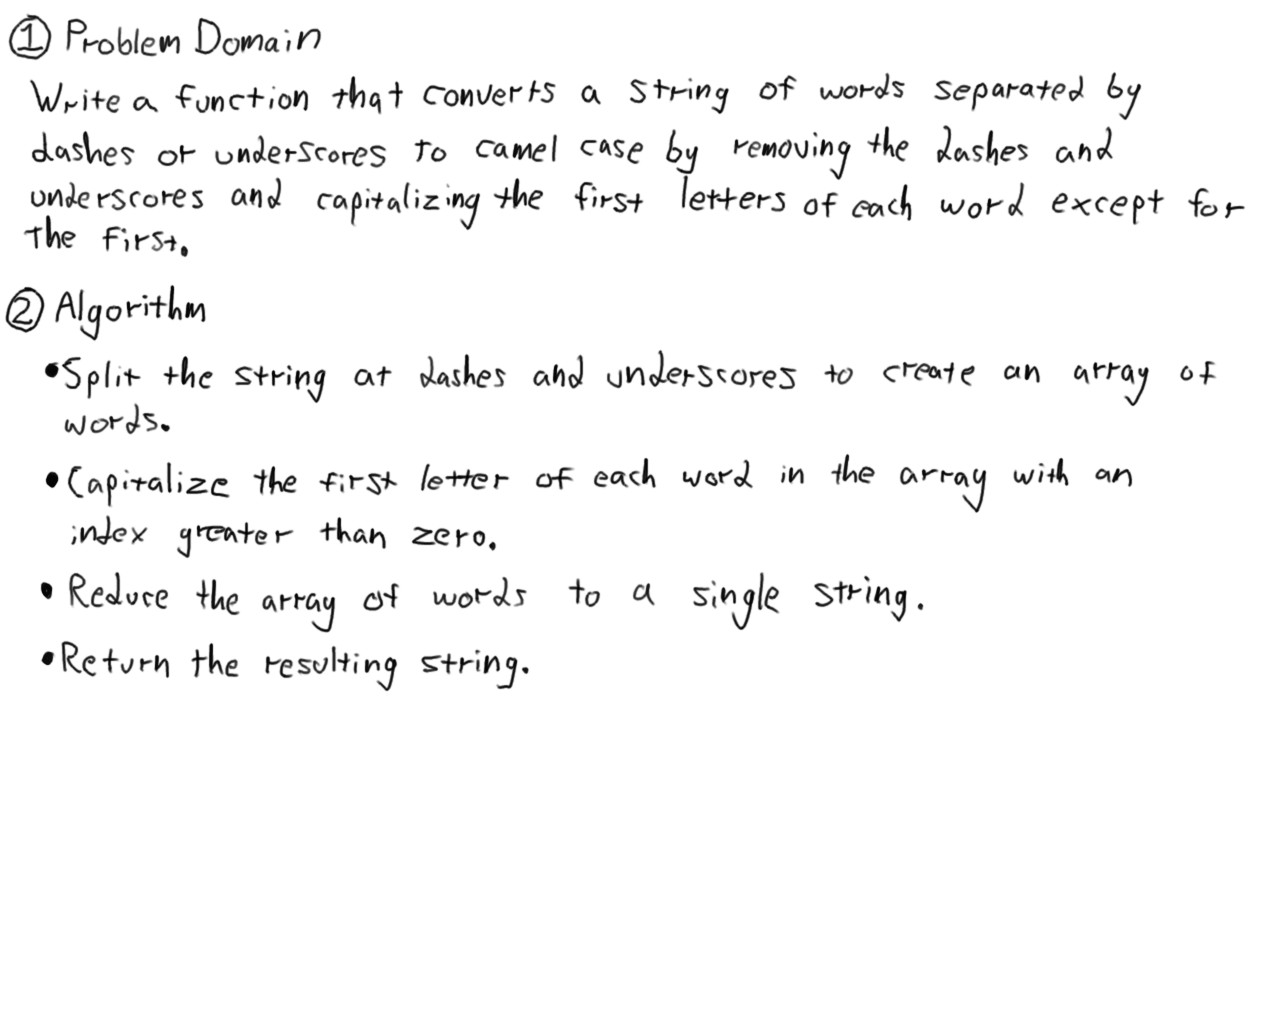 ① Problem Domain
Write a function that converts a string of words separated by
dashes or underscores to camel case by removing the dashes and
underscores and capitalizing the first letters of each word except for
the first.
② Algorithm
•Split the string at dashes and underscores to create an array of
words.
•Capitalize the first letter of each word in the array with an
index greater than zero.
•Reduce the array of words to a single string.
•Return the resulting string.